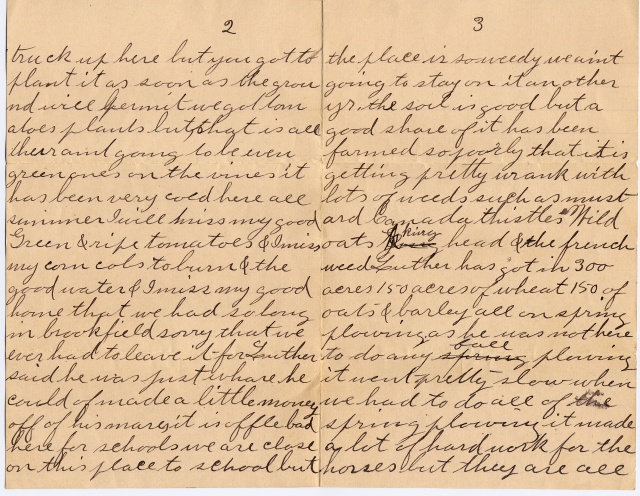 2
truck up here but you got to
plant it as soon as the grou
nd will permit we got tom
atoes plants but that is all
ther aint going to be even
green ones on the vines it
has been very cold here all
summer I will miss my good
Green & ripe tomatoes & I miss
my corn cobs to burn & the
good water & I miss my good
home that we had so long
in brookfield sorry that we
ever had to leave it for Luther
said he was just whare he
could of made a little money
off of his mares it is offle bad
here for schools we are close
on this place to school but
3
the place is so weedy we aint
going to stay on it another
yr. the soil is good but a
good share of it has been
farmed so poorly that it is
getting pretty wrank with
lots of weeds such as must
ard Canada thistles Wild
oats king head & the french
weed Luther has got in 300
acres 150 acres of wheat 150 of
oats & barley all on spring
plowing as he was not here
to do any fall plowing
it went pretty slow when
we had to do all of the
spring plowing it made
a lot of hard work for the
horses but they are all